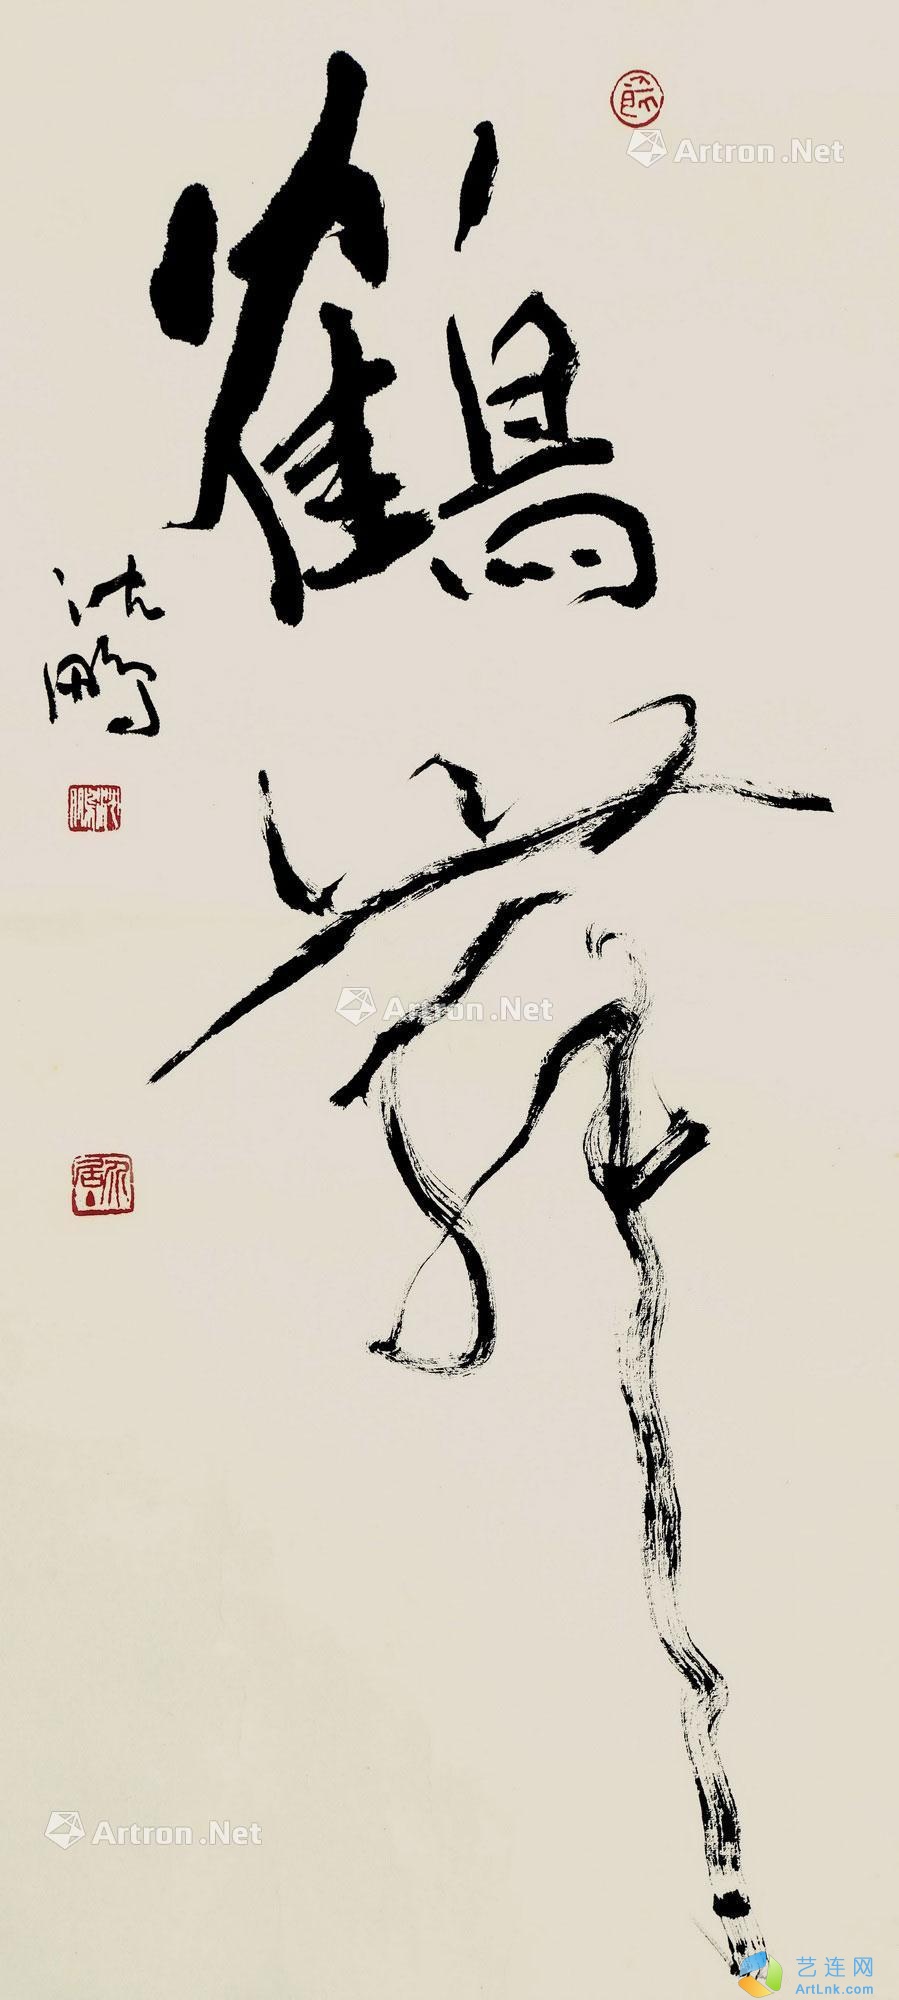 鶴舞
沈鵬
Artron.Net
Artron.Net
Artron.Net
艺连网
ArtLnk.com